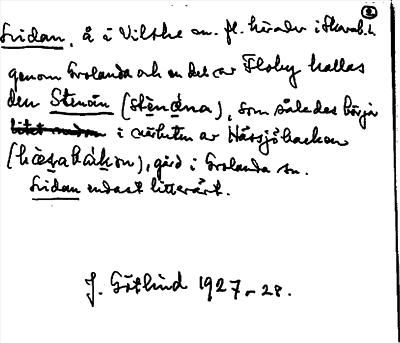 ②
Lidan, å i Vilske m. fl. härader i Skarab. l.
genom Grolanda och en del av Floby kallas
den Stenån (stè̱nǻna), som således börjar
i närheten av Hårsjöbacken
(hå̀ṣabákən), gård i Grolanda sn.
Lidan endast litterärt.
J. Götlind 1927-28.